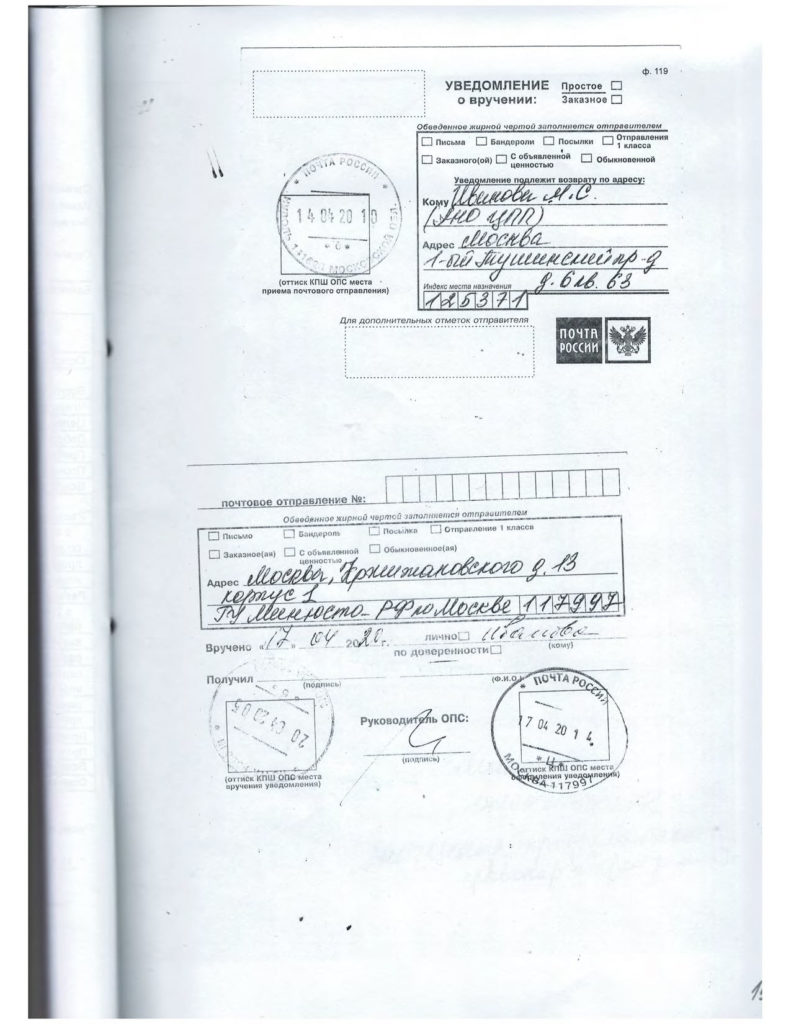 ф. 119
УВЕДОМЛЕНИЕ Простое
о вручении: Заказное
Обведенное жирной чертой заполняется отправителем
Письма Бандероли Посылки Отправления 1 класса
Заказного(ой) С объявленной ценностью Обыкновенной
Уведомление подлежит возврату по адресу:
Кому Ивинова М.С.
(АНО ЦПП)
Адрес Москва
1-ый Тушинский пр-д
д. 6 кв. 63
Индекс места назначения
125371
ПОЧТА РОССИИ
14 04 20 10
(оттиск КПШ ОПС места
приема почтового отправления)
Для дополнительных отметок отправителя
ПОЧТА
РОССИИ
почтовое отправление №:
Обведенное жирной чертой заполняется отправителем
Письмо Бандероль Посылка Отправление 1 класса
Заказное(ая) С объявленной ценностью Обыкновенное(ая)
Адрес Москва, Кржижановского д. 13
корпус 1
ГУ Минюста РФ по Москве 117997
Вручено «17» 04 2020г. лично
по доверенности (кому)
Получил (подпись) (Ф.И.О.)
20 04 20 05
Руководитель ОПС:
(подпись)
ПОЧТА РОССИИ
17 04 20 14
МОСКВА 117997
(оттиск КПШ ОПС места
вручения уведомления)
(оттиск КПШ ОПС места
оформления уведомления)